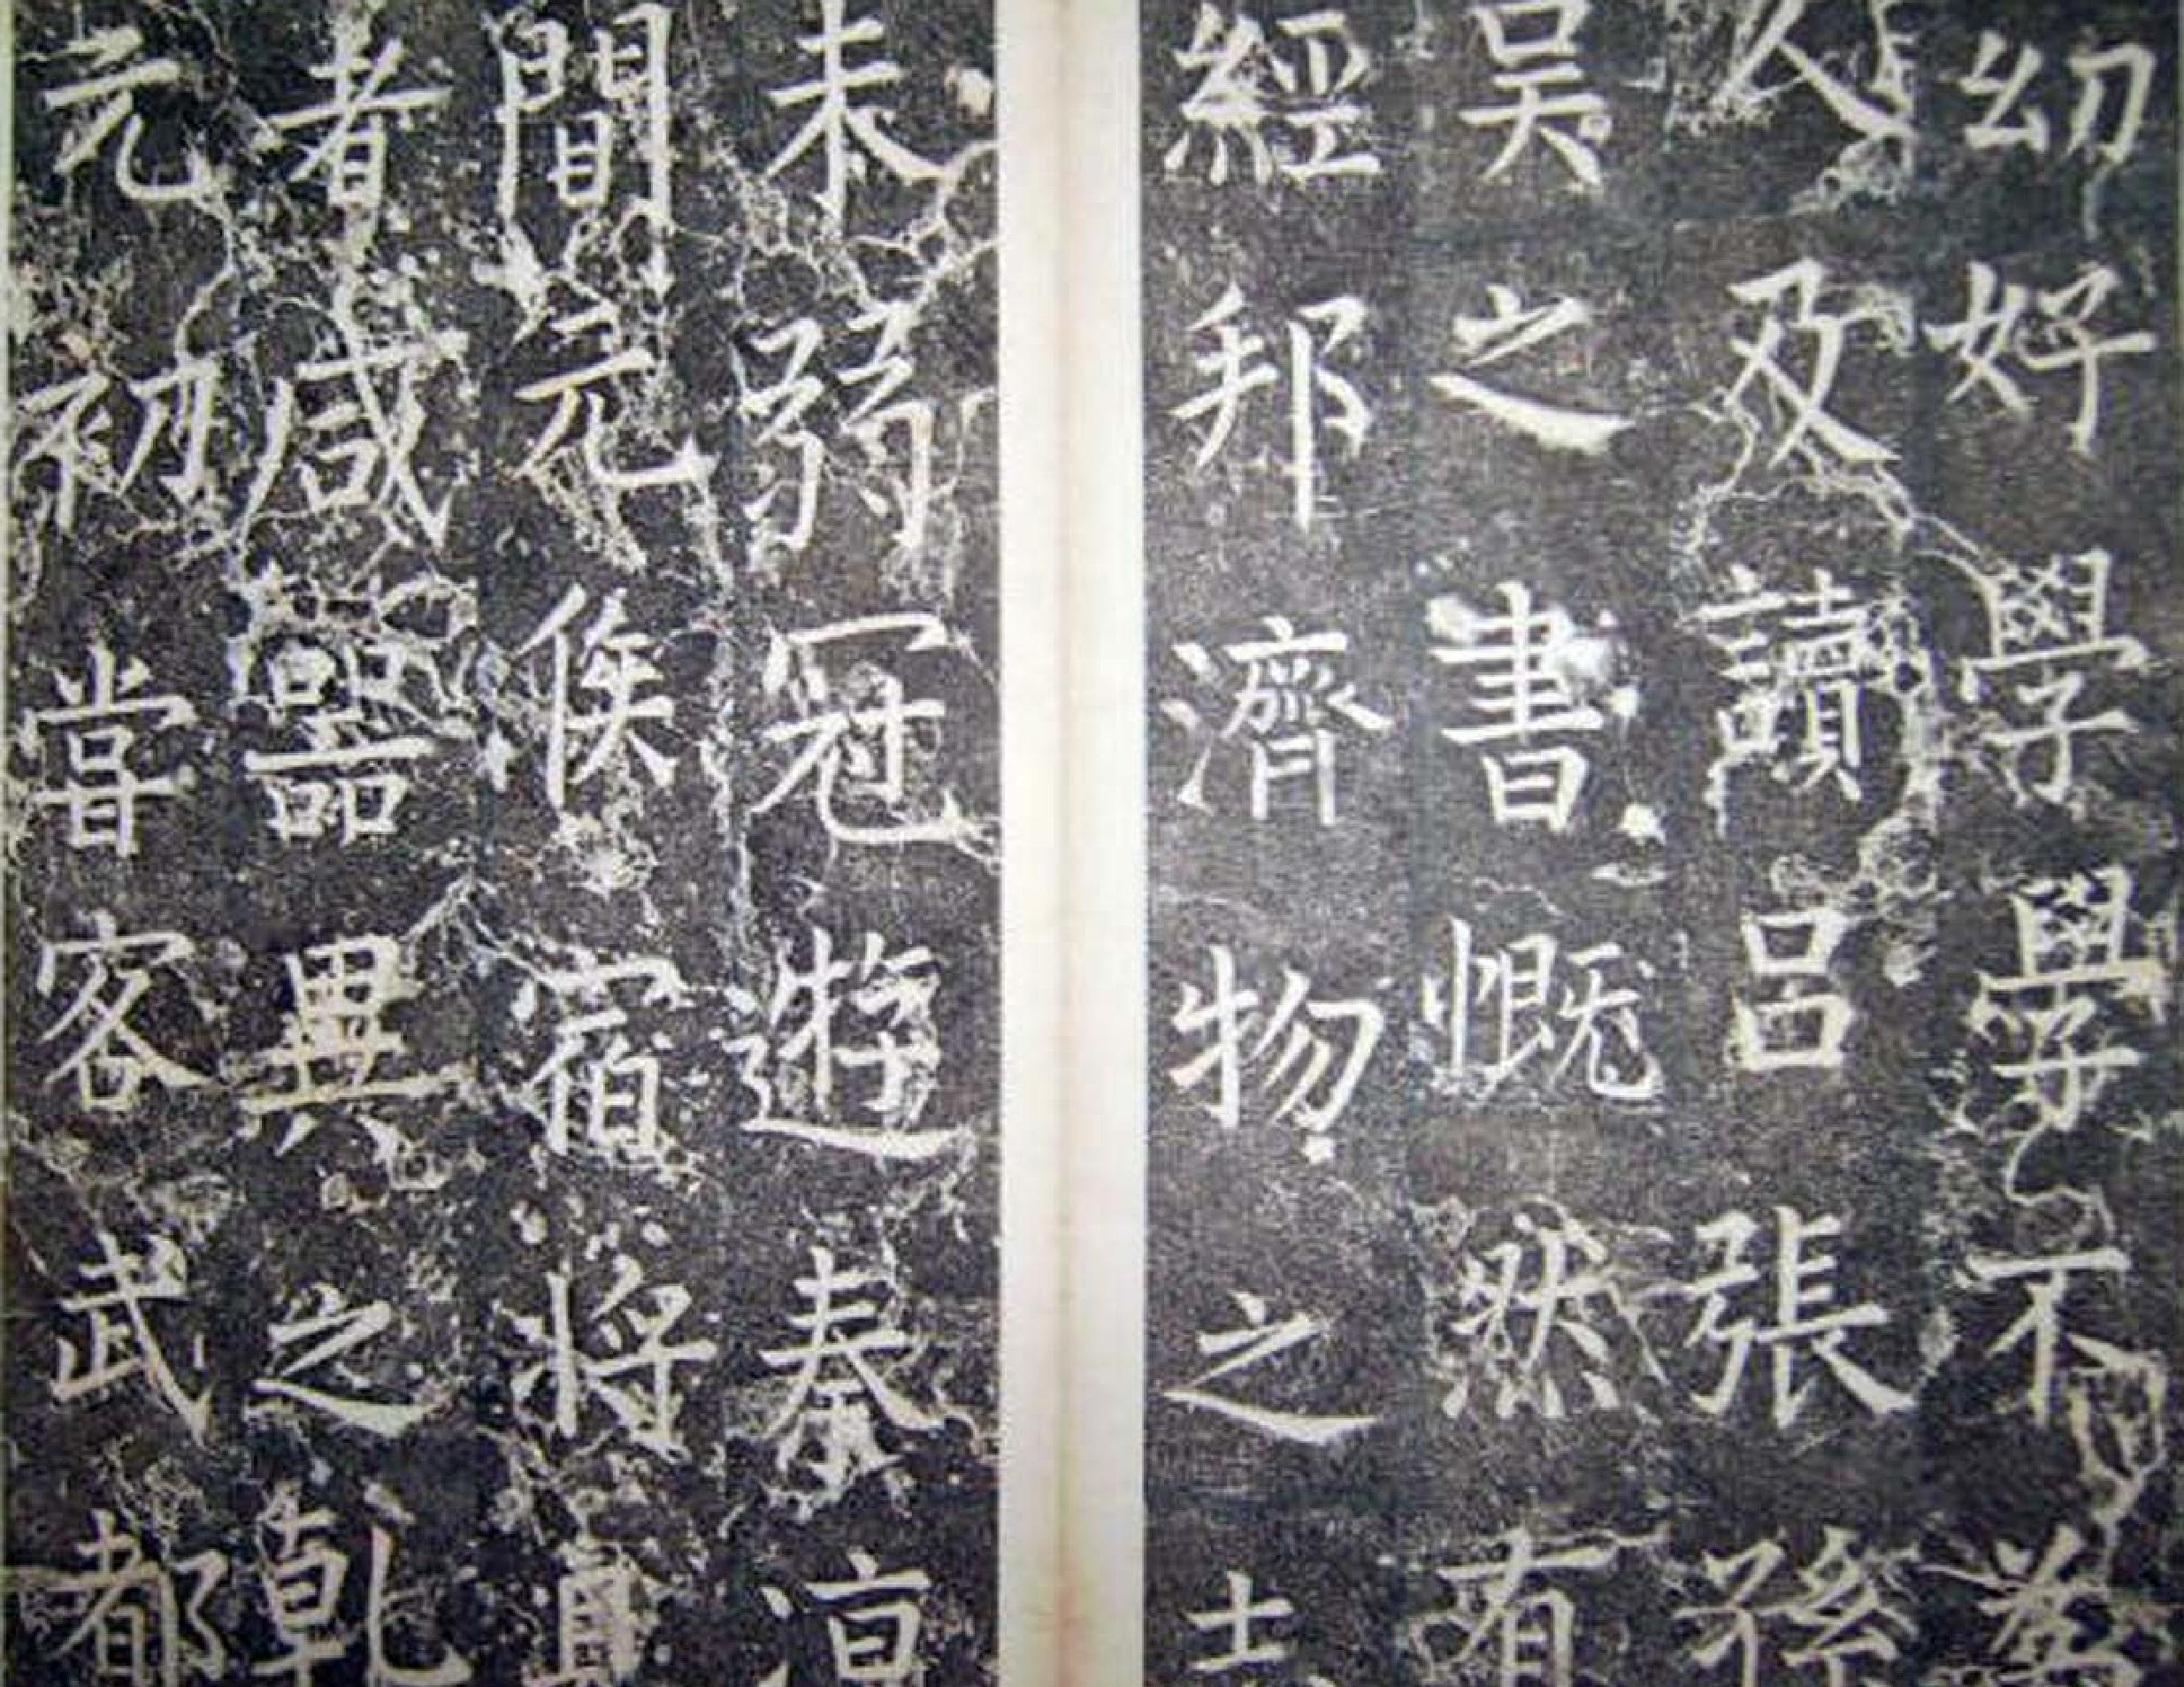 幼好學學不為
人及讀呂張孫
吳之書慨然有
經邦濟物之志
未弱冠遊秦涼
間元侯宿將見
者咸器異之乾
元初嘗客武都